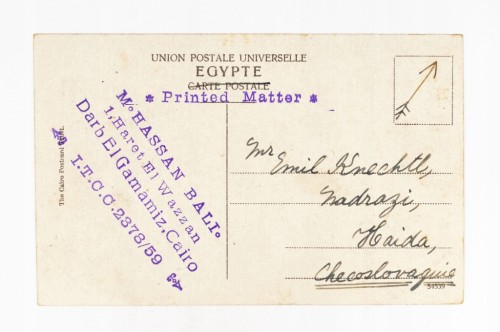 UNION POSTALE UNIVERSELLE
EGYPTE
CARTE POSTALE
* Printed Matter *
Mo HASSAN BALI.
1, Haret El Wazzan
Darb El Gamamiz, Cairo
I.T.C.C. 2378/59
The Cairo Postcard
Mr Emil Knechtl,
Nadrazi,
Haida,
Checoslovaquie
54539